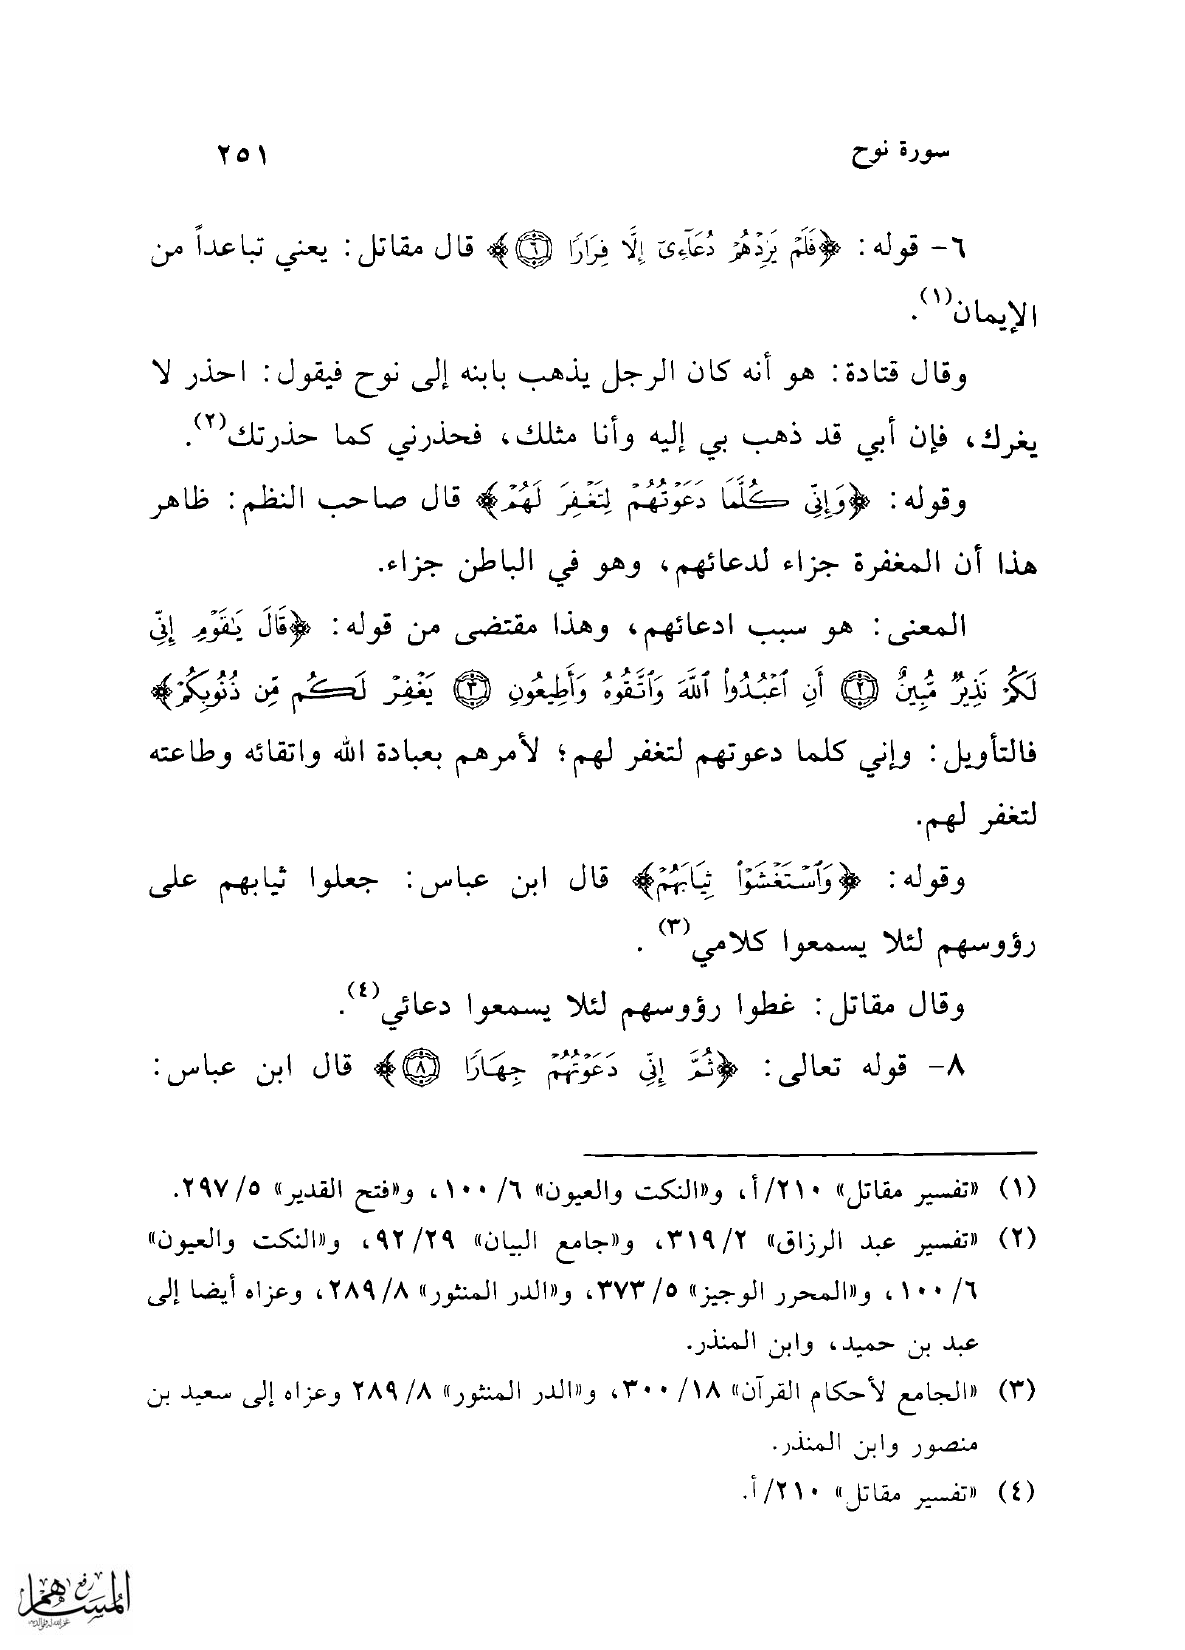 سورة نوح ٢٥١
٦- قوله: ﴿فَلَمْ يَزِدْهُمْ دُعَآءِىٓ إِلَّا فِرَارًا ٦﴾ قال مقاتل: يعني تباعداً من
الإيمان(١).
وقال قتادة: هو أنه كان الرجل يذهب بابنه إلى نوح فيقول: احذر لا
يغرك، فإن أبي قد ذهب بي إليه وأنا مثلك، فحذرني كما حذرتك(٢).
وقوله: ﴿وَإِنِّى كُلَّمَا دَعَوْتُهُمْ لِتَغْفِرَ لَهُمْ﴾ قال صاحب النظم: ظاهر
هذا أن المغفرة جزاء لدعائهم، وهو في الباطن جزاء.
المعنى: هو سبب ادعائهم، وهذا مقتضى من قوله: ﴿قَالَ يَـٰقَوْمِ إِنِّى
لَكُمْ نَذِيرٌ مُّبِينٌ ٢ أَنِ ٱعْبُدُوا۟ ٱللَّهَ وَٱتَّقُوهُ وَأَطِيعُونِ ٣ يَغْفِرْ لَكُم مِّن ذُنُوبِكُمْ﴾
فالتأويل: وإني كلما دعوتهم لتغفر لهم؛ لأمرهم بعبادة الله واتقائه وطاعته
لتغفر لهم.
وقوله: ﴿وَٱسْتَغْشَوْا۟ ثِيَابَهُمْ﴾ قال ابن عباس: جعلوا ثيابهم على
رؤوسهم لئلا يسمعوا كلامي(٣) .
وقال مقاتل: غطوا رؤوسهم لئلا يسمعوا دعائي(٤).
٨- قوله تعالى: ﴿ثُمَّ إِنِّى دَعَوْتُهُمْ جِهَارًا ٨﴾ قال ابن عباس:
(١) «تفسير مقاتل» ٢١٠/أ، و«النكت والعيون» ٦/ ١٠٠، و«فتح القدير» ٥/ ٢٩٧.
(٢) «تفسير عبد الرزاق» ٢/ ٣١٩، و«جامع البيان» ٢٩/ ٩٢، و«النكت والعيون»
٦/ ١٠٠، و«المحرر الوجيز» ٥/ ٣٧٣، و«الدر المنثور» ٨/ ٢٨٩، وعزاه أيضا إلى
عبد بن حميد، وابن المنذر.
(٣) «الجامع لأحكام القرآن» ١٨/ ٣٠٠، و«الدر المنثور» ٨/ ٢٨٩ وعزاه إلى سعيد بن
منصور وابن المنذر.
(٤) «تفسير مقاتل» ٢١٠/أ.
رفع
المساهم